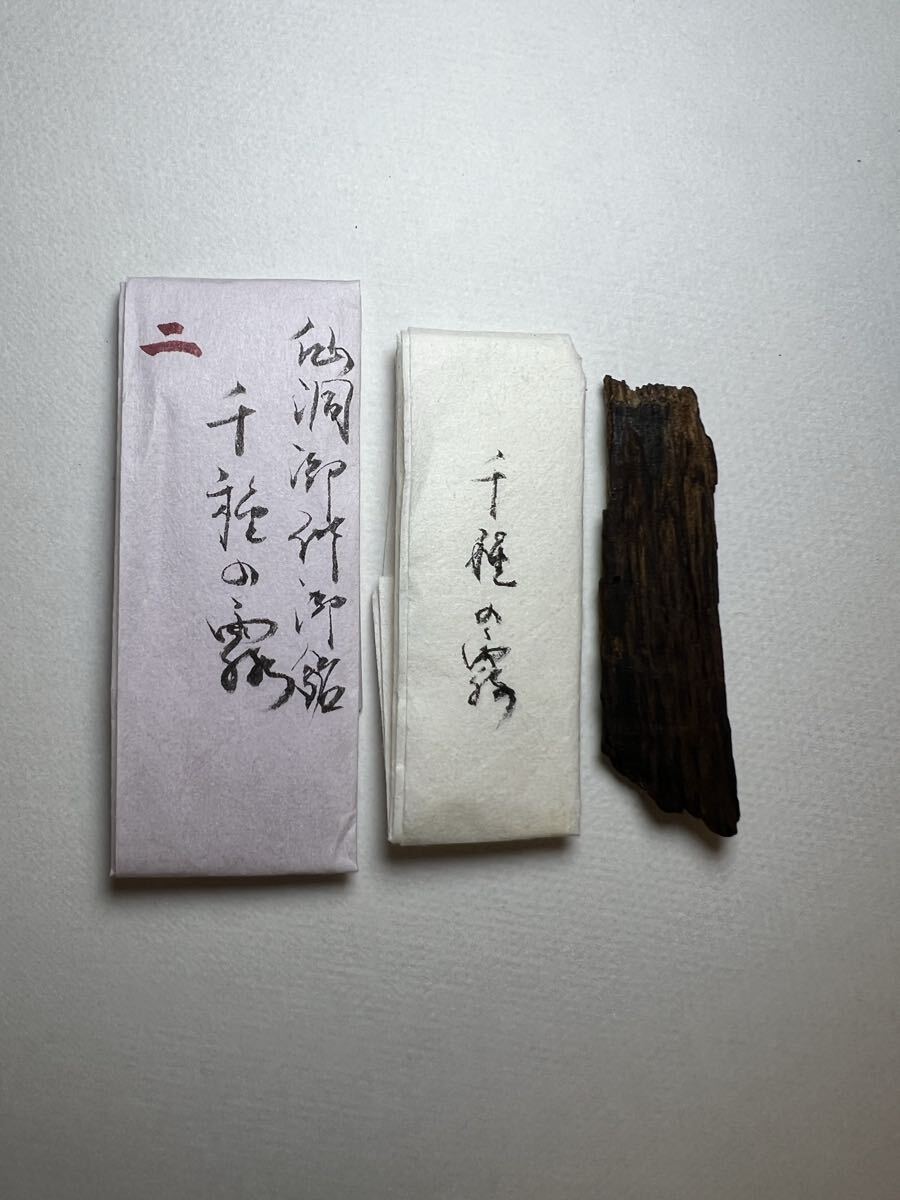 二
仙洞御御銘
千種の露
千種の露